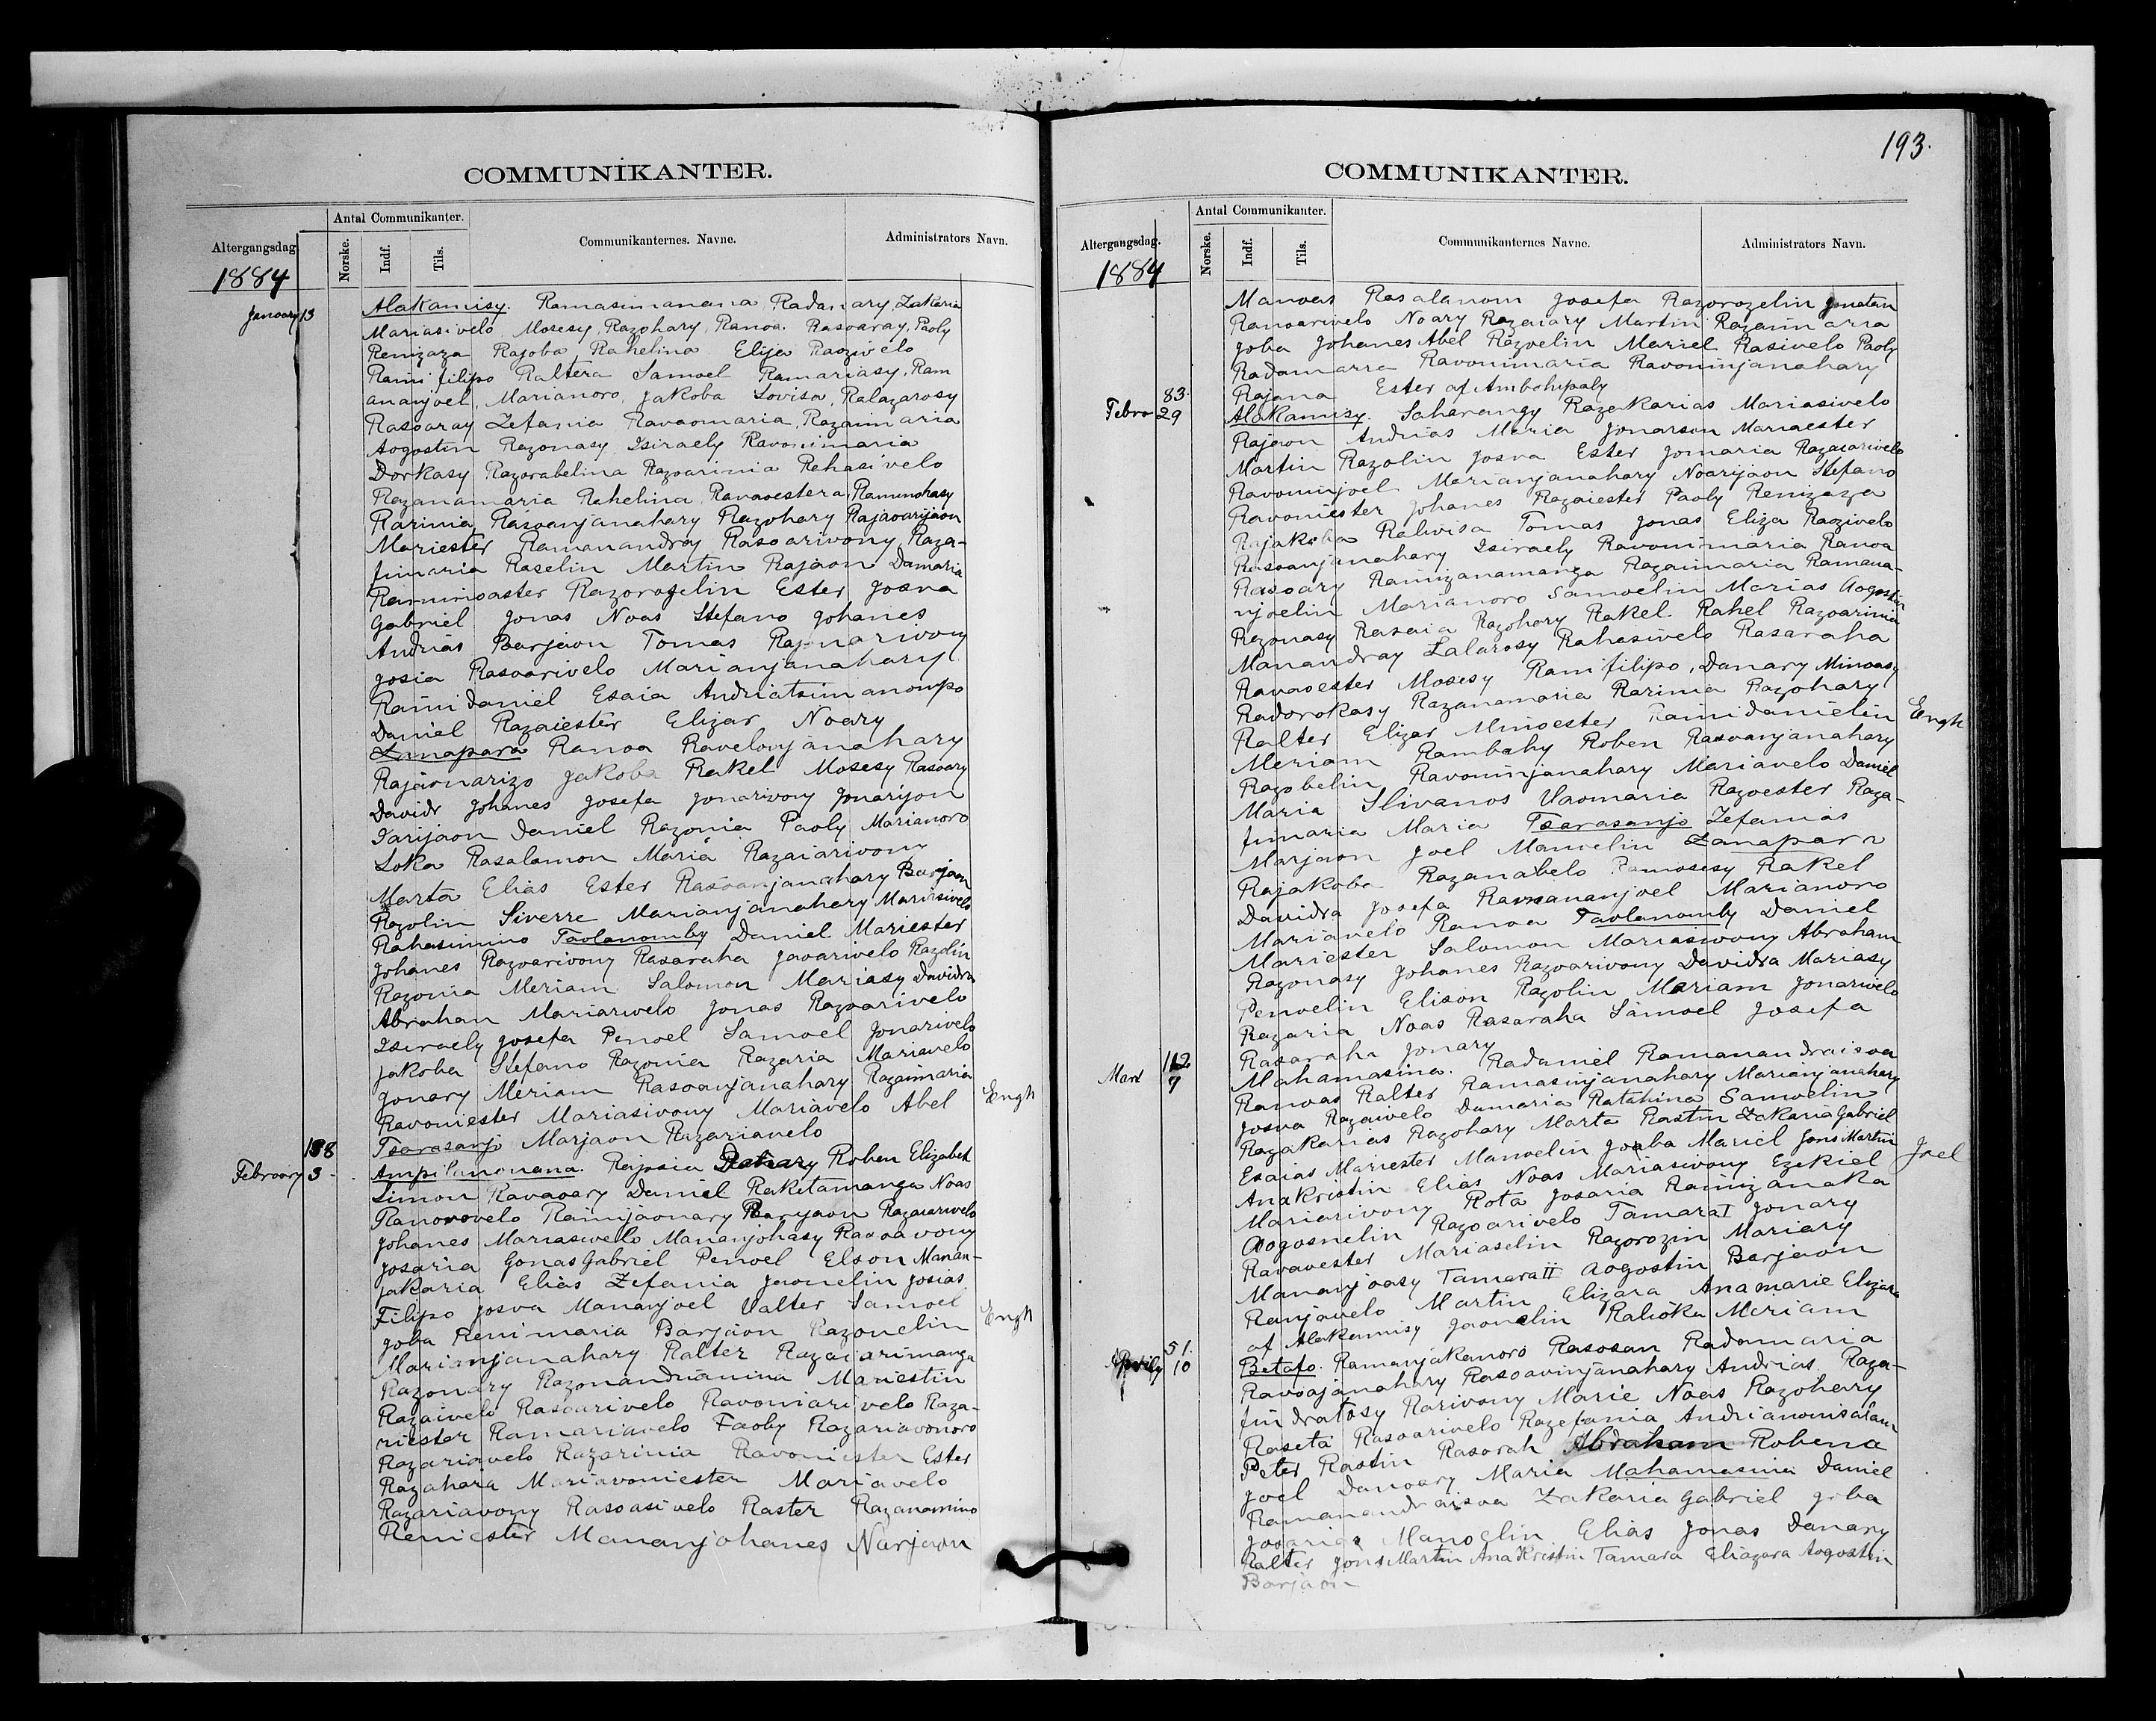 COMMUNIKANTER.
Altergangsdag
Antal Communikanter.
Norske.
Indf.
Tils.
Communikanternes. Navne.
Administrators Navn.
1884
January 13
Alakamisy. Ramasimanana Radanary Zakaria
Mariasivelo Mosesy Razohary Ranoa Rasoaray Paoly
Renizaza Rajoba Rahelina Elija Raozivelo
Raini filipo Raltera Samoel Ramariasy Ram
ananjoel Marianoro Jakoba Lovisa Ralazarosy
Rasoaray Zefania Ravaomaria Razaimaria
Aogostin Razonasy Isiraely Ravonimaria
Dorkasy Razorabelina Razoarimia Rehasivelo
Razanamaria Rahelina Ravaoestera Raminohasy
Rarimia Rasoanjanahary Razohary Rajaoarijaon
Mariester Ramanandray Rasoarivony Raza-
fimaria Raselin Martin Rajaon Damaria
Raminoaster Razorozelin Ester Josva
Gabriel Jonas Noas Stefano Johanes
Andrias Barjaon Tomas Rajonarivony
Josia Rasoarivelo Marianjanahary
Raini Daniel Esaia Andriatsimanompo
Daniel Razaiester Elizar Noary
Zanapara Ranoa Ravelonjanahary
Rajaonarizo Jakoba Rakel Mosesy Rasoary
Davidr Johanes Josefa Jonarivony Jonarijon
Iarijaon Daniel Razonia Paoly Marianoro
Loka Rasalamon Maria Razaiarivony
Marta Elias Ester Rasoanjanahary Barjaon
Razolin Siverre Marianjanahary Mariasivelo
Rahasimino Taolanomby Daniel Mariester
Johanes Razoarivony Rasaraha Javarivelo Razolin
Razonia Meriam Salomon Mariasy Davidra
Abrahan Mariarivelo Jonas Razoarivelo
Isiraely Josefa Penoel Samoel Jonarivelo
Jakoba Stefano Razonia Razaria Mariavelo
Jonary Meriam Rasoanjanahary Razaimaria
Ravoniester Mariasivony Mariavelo Abel
Engh
Tsarasanjo Marjaon Razarianelo
188
February 3
Ampilanonana. Rajosia Danary Roben Elizabet
Simon Ravaoary Daniel Raketamanga Noas
Ranorovelo Rainijaonary Barjaon Razaiarivelo
Johanes Mariasivelo Mananjohasy Rasoavony
Josaria Gonas Gabriel Penoel Elson Manan-
jakaria Elias Zefania Jaonelin Josias
Filipo Josva Mananjoel Valter Samoel
Joba Renimaria Barjaon Razonelin
Engh
Marianjanahary Ralter Razaiarimanga
Razonary Razonandrianina Mariestin
Razaivelo Rasoarivelo Ravoniarivelo Raza-
riester Ramariavelo Faoly Razariavonoro
Razariavelo Razarinia Ravoniester Ester
Razahara Mariavoniester Mariavelo
Razariavony Rasoasivelo Raster Razanamino
Reniester Mananjohanes Narjaon
193.
COMMUNIKANTER.
Altergangsdag.
Antal Communikanter.
Norske.
Indf.
Tils.
Communikanternes Navne.
Administrators Navn.
1884
Manoas Rasalamon Josefa Razorozelin Jonatan
Ranoarivelo Noary Razaiary Martin Razaimarra
Joba Johanes Abel Razoelin Mariel Rasivelo Paoly
Radamarra Ravonimaria Ravoninjanahary
Rajona Ester af Ambohipaly
83.
Febro 29
Alakamisy. Saharangy Razakarias Mariasivelo
Rajaon Andrias Maria Jonarson Mariaester
Martin Razolin Josva Ester Jomaria Razaiarivelo
Ravoninjoel Marianjanahary Noarijaon Stefano
Ravoniester Johanes Razaiester Paoly Renizaza
Rajakoba Ralivisa Tomas Jonas Eliza Raozivelo
Rasoanjanahary Isiraely Ravonimaria Ranoa
Rasoary Rainizanamanga Razaimaria Ramana-
njoelin Marianoro Samoelin Marias Aogostin
Razonasy Rasaia Razohary Rakel Rahel Razoarimia
Manandray Lalarosy Rahasivelo Rasaraha
Ravaoester Mosesy Rainifilipo, Danary Minoasy
Radorokasy Razanamaria Rarimia Razohary
Ralter Elizar Minoester Rainidanielin
Engh
Meriam Rambahy Roben Rasoanjanahary
Razobelin Ravoninjanahary Mariavelo Daniel
Maria Slivanos Vaomaria Razoester Raza-
fimaria Maria Tsarasanjo Zefanias
Marjaon Joel Manoelin Zanapara
Rajakoba Razanabelo Ramosesy Rakel
Davidra Josefa Ramananjoel Marianoro
Mariavelo Ranoa Taolanomby Daniel
Mariester Salomon Mariasivony Abraham
Razonasy Johanes Razoarivony Davidra Mariasy
Penoelin Elison Razolin Mariam Jonarivelo
Razaria Noas Rasaraha Samoel Josefa
Rasaraha Jonary
112
Mart 9
Mahamasina. Radaniel Ramanandraisoa
Ranoas Ralter Ramasinjanahary Marianjanahary
Josva Razaivelo Damaria Ratahina Samoelin
Razakarias Razohary Marta Rastin Zakaria Gabriel
Esaias Mariester Manoelin Joaba Mariel Jons Martin
Joel
Anakristin Elias Noas Mariasivony Ezekiel
Mariarivony Rota Josaria Rainizanaka
Aogosnelin Razoarivelo Tamara I Jonary
Ravavester Mariaselin Razorozin Mariary
Mananjoasy Tamara II Aogostin Barjaon
Ranjavelo Martin Elizara Anamarie Elizara
af Alakamisy Jaonelin Ralioka Meriam
51.
Aprily 10
Betafo. Ramanjakanoro Rasosan Radamaria
Ravoajanahary Rasoavinjanahary Andrias Raza-
findratosy Rarivony Marie Noas Razohary
Raseta Rasoarivelo Razefania Andrianonisalam
Peter Rastin Rasarah Abraham Robena
Joel Danoary Maria Mahamasina Daniel
Ramanandraisoa Zakaria Gabriel Joba
Josarias Manoelin Elias Jonas Danary
Ralter Jons Martin Ana Kristin Tamara Eliazara Aogostin
Barjaon